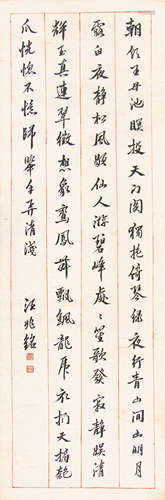 朝飲王母池暝投天門關獨抱倚琴綠夜行青山間山明月
露白夜靜松風歇仙人游碧峰處〻笙歌發寂靜娛清
輝玉真連翠微想象鸞鳳舞飄颻龍虎衣捫天摘匏
瓜恍惚不憶歸舉手弄清淺
汪兆銘